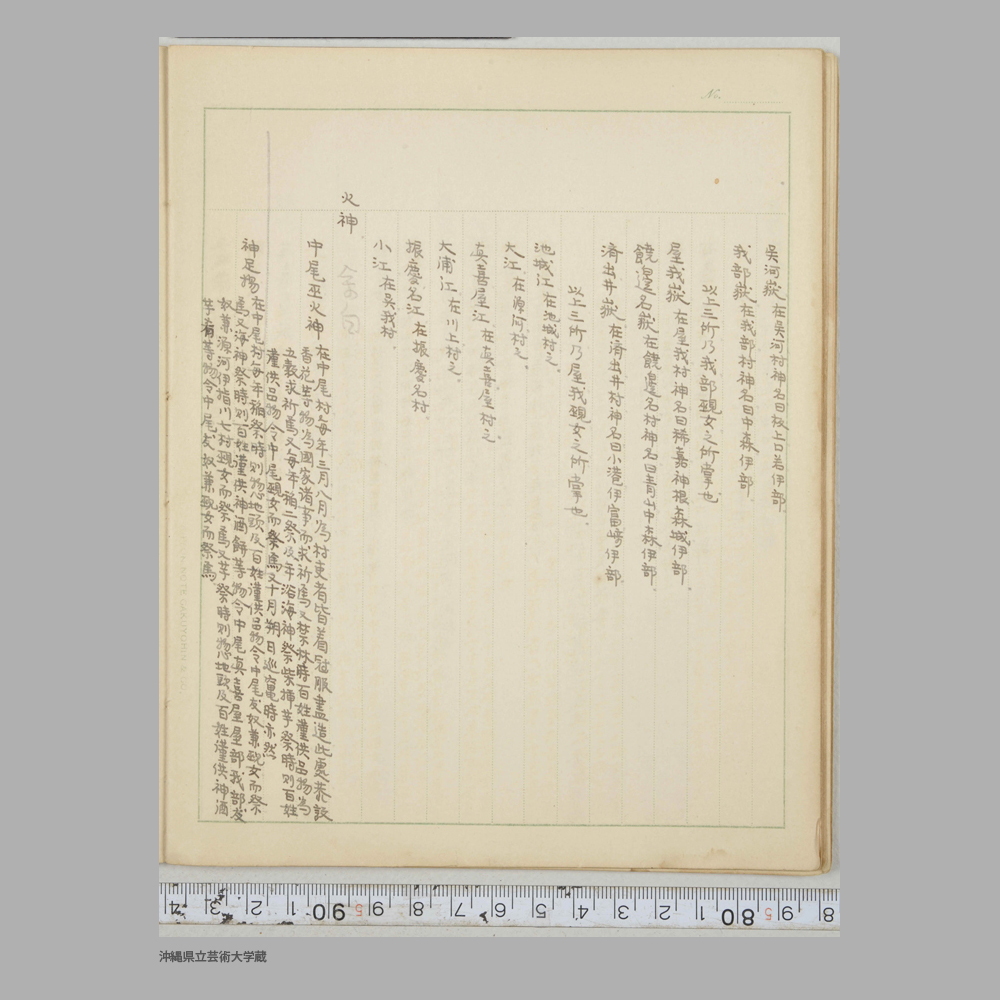 No.
吴河嶽 在吴河村神名曰板上口若伊部
我部嶽 在我部村神名曰中森伊部
以上二所乃我部覡女之所掌也
屋我嶽 在屋我村神名曰稀嘉神根森城伊部
饒邊名嶽 在饒邊名村神名曰青山中森伊部
済出井嶽 在済出井村神名曰小港伊富崎伊部
以上三所乃屋我覡女之所掌也
池城江 在池城村之
大江 在源河村之
真喜屋江 在真喜屋村之
大浦江 在川上村之
振慶名江 在振慶名村
小江 在吴我村
火神
中尾巫火神 在中尾村每年三月八月為村吏者皆着冠服盡造此處恭設
香花等物為國家諸事而求祈焉又禁林時百姓謹供品物為
五穀求祈焉又每年稲二祭及年浴海神祭柴揷芋祭時則百姓
謹供品物令中尾覡女而祭焉又十月朔日巡竃時亦然
神足揚 在中尾村每年稲祭時則惣地頭及百姓謹供品物令中尾友奴兼覡女而祭
焉又海神祭時則百姓謹供神酒餠等物令中尾真喜屋屋部我部友
奴兼源河伊指川七村覡女而祭焉又芋祭時則惣地頭及百姓謹供神酒
芋肴等物令中尾友奴兼覡女而祭焉
沖縄県立芸術大学蔵
4 3 2 1 90 9 8 7 6 5 4 3 2 1 80 9 8